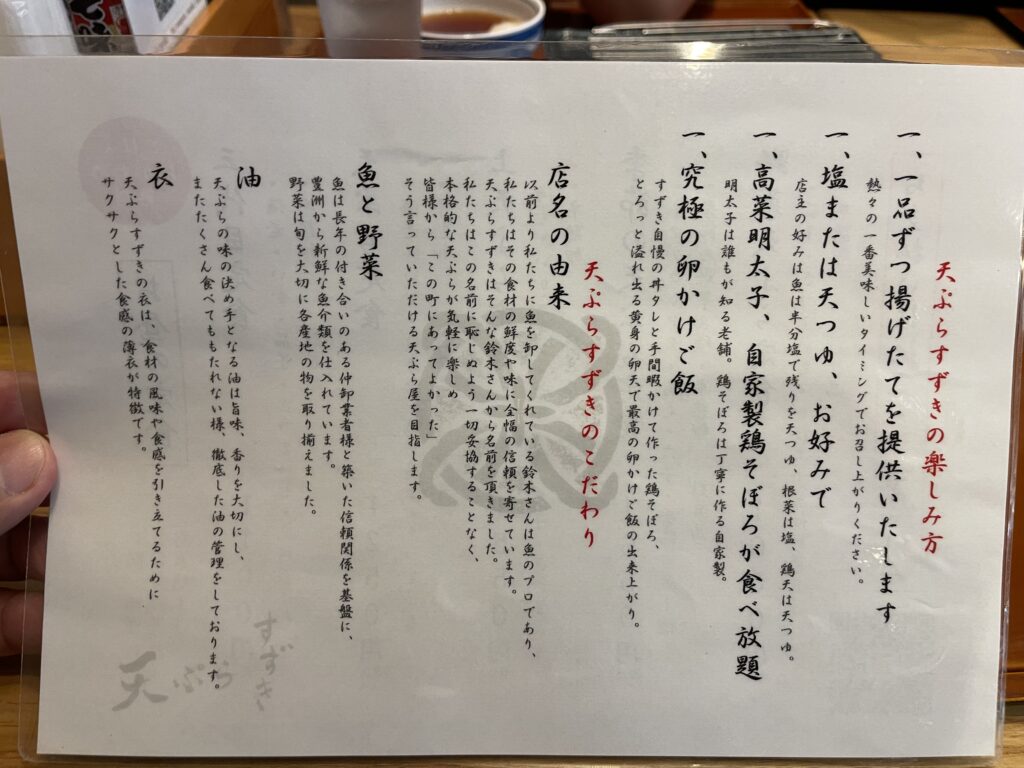 天ぷらすずきの楽しみ方
一、一品ずつ揚げたてを提供いたします
熱々の一番美味しいタイミングでお召し上がりください。
一、塩または天つゆ、お好みで
店主の好みは魚は半分塩で残りを天つゆ、根菜は塩、鶏天は天つゆ。
一、高菜明太子、自家製鶏そぼろが食べ放題
明太子は誰もが知る老舗。鶏そぼろは丁寧に作る自家製。
一、究極の卵かけご飯
すずき自慢の丼タレと手間暇かけて作った鶏そぼろ、
とろっと溢れ出る黄身の卵天で最高の卵かけご飯の出来上がり。
天ぷらすずきのこだわり
店名の由来
以前より私たちに魚を卸してくれている鈴木さんは魚のプロであり、
私たちはその食材の鮮度や味に全幅の信頼を寄せています。
天ぷらすずきはそんな鈴木さんから名前を頂きました。
私たちはこの名前に恥じぬよう一切妥協することなく、
本格的な天ぷらが気軽に楽しめ
皆様から「この町にあってよかった」
そう言っていただける天ぷら屋を目指します。
魚と野菜
魚は長年の付き合いのある仲卸業者様と築いた信頼関係を基盤に、
豊洲から新鮮な魚介類を仕入れています。
野菜は旬を大切に各産地の物を取り揃えました。
油
天ぷらの味の決め手となる油は旨味、香りを大切にし、
またたくさん食べてももたれない様、徹底した油の管理をしております。
衣
天ぷらすずきの衣は、食材の風味や食感を引き立てるために
サクサクとした食感の薄衣が特徴です。
天ぷら
すずき